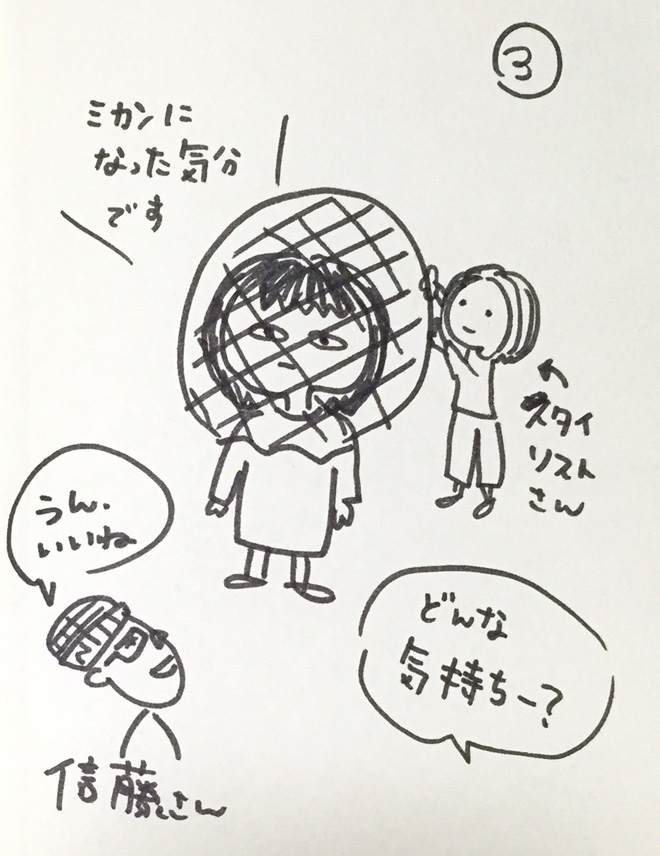 3
ミカンに
なった気分
です
スタイ
リスト
さん
うん、
いいね
どんな
気持ちー？
信藤さん